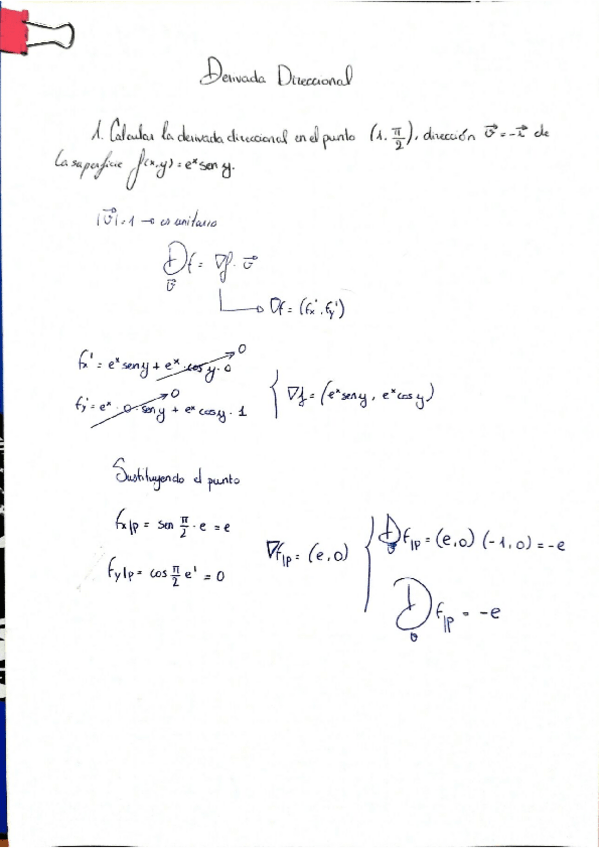 Derivada Direccional
1. Calcular la derivada direccional en el punto (1, π/2), dirección v⃗ = -i⃗ de
la superficie f(x,y) = eˣ sen y.
|v⃗| = 1 → es unitario
D_v⃗ f = ∇f · v⃗
→ ∇f = (fx', fy')
fx' = eˣ sen y + eˣ · cos y · 0 → 0
fy' = eˣ · 0 · sen y → 0 + eˣ cos y · 1
{ ∇f = (eˣ sen y, eˣ cos y)
Sustituyendo el punto
fx|p = sen π/2 · e = e
fy|p = cos π/2 e¹ = 0
∇f|p = (e, 0)
{ D_v f|p = (e, 0) (-1, 0) = -e
D_v f|p = -e